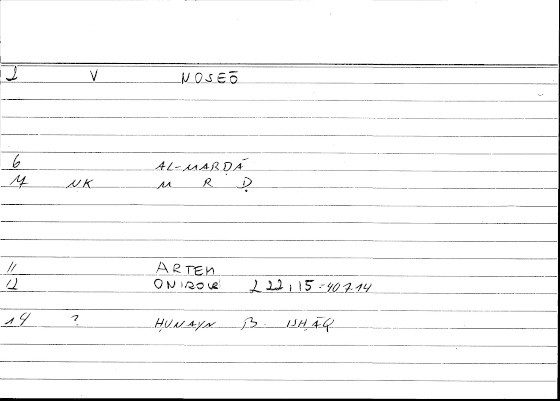 2 V NOSEŌ
6 AL-MARḌĀ
7 NK M R Ḍ
11 ARTEM
12 ONIROCR 222,15=407.14
14 ? ḤUNAYN B. ISḤĀQ